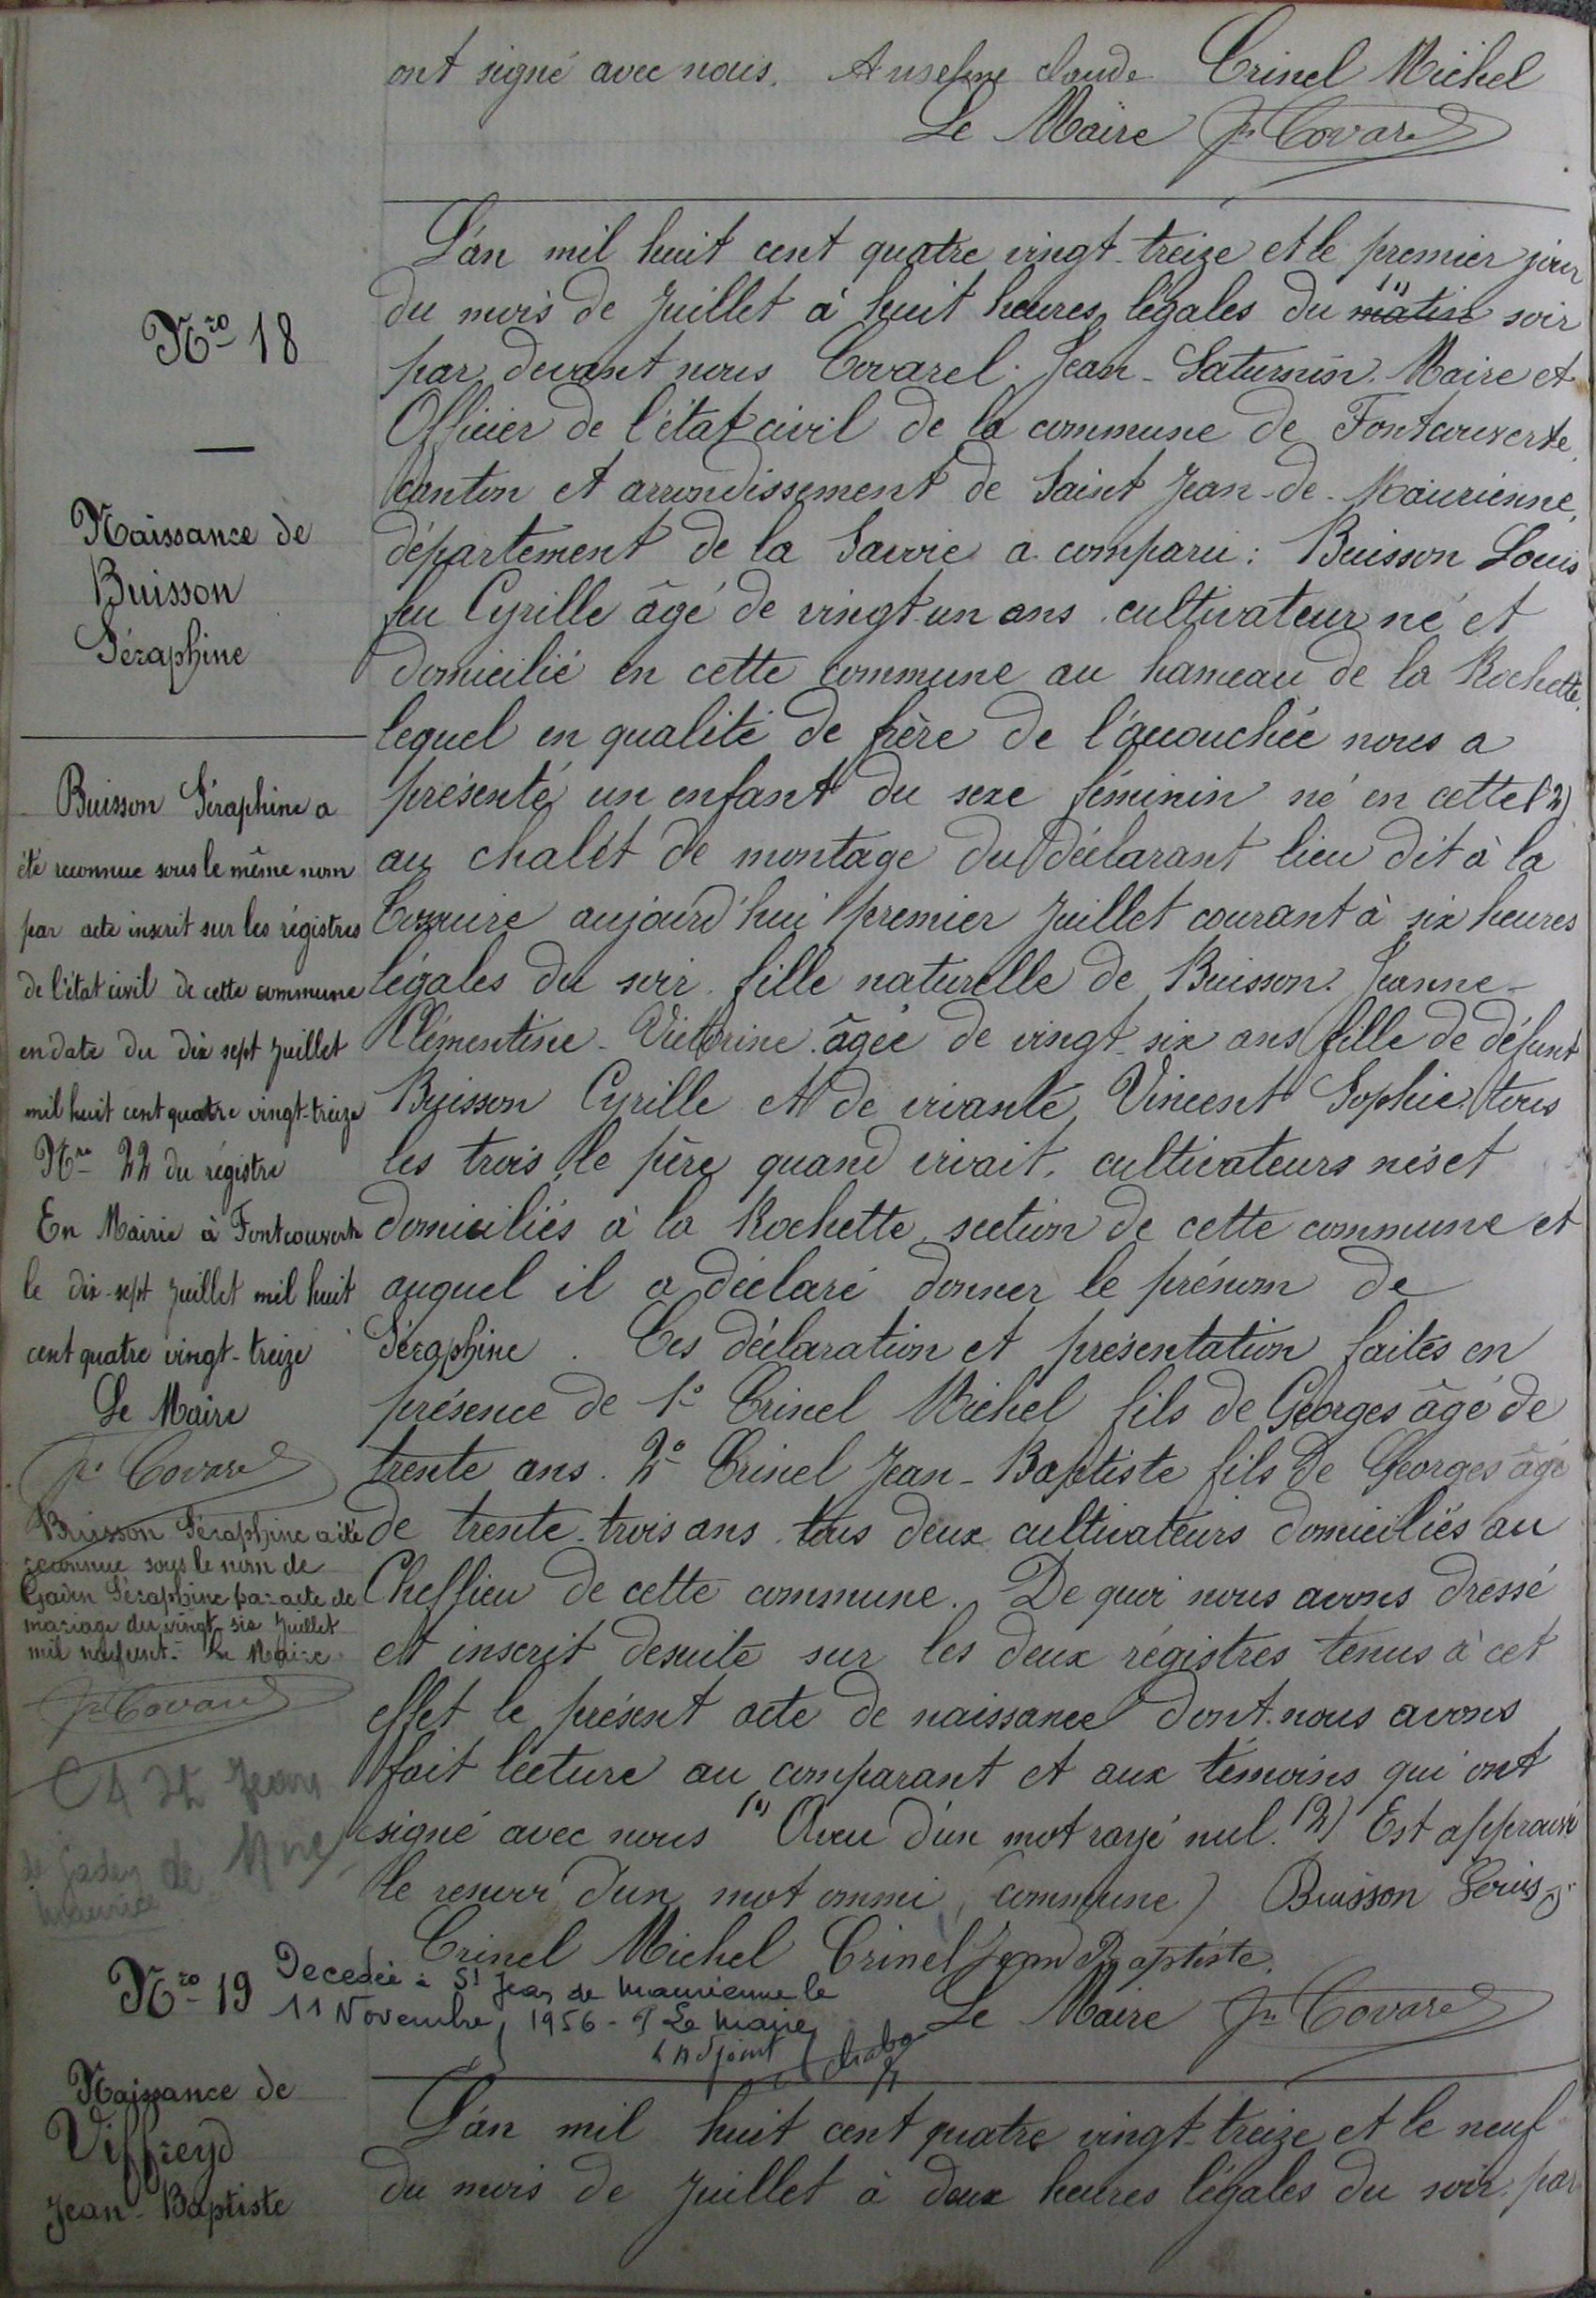 ont signé avec nous. Anselme claude Crinel Michel
Le Maire Jn Covarel
Nro 18
Naissance de
Buisson
Séraphine
L'an mil huit cent quatre vingt-treize et le premier jour
du mois de Juillet à huit heures légales du (1) matin soir
par devant nous Covarel Jean-Saturnin. Maire et
Officier de l'état civil de la commune de Fontcouverte,
canton et arrondissement de Saint Jean-de-Maurienne,
département de la Savoie a comparu : Buisson Louis
feu Cyrille âgé de vingt-un ans cultivateur né et
domicilié en cette commune au hameau de la Rochette,
lequel en qualité de frère de l'accouchée nous a
présenté un enfant du sexe féminin né en cette (2)
au chalet de montage du déclarant lieu dit à la
aujourd'hui premier Juillet courant à six heures
légales du soir fille naturelle de Buisson. Jeanne-
Clémentine-Victorine âgée de vingt-six ans fille de défunt
Buisson Cyrille et de vivante Vincent Sophie, tous
les trois, le père quand vivait, cultivateurs nés et
domiciliés à la Rochette section de cette commune et
auquel il a déclaré donner le prénom de
Séraphine. Ces déclaration et présentation faites en
présence de 1° Crinel Michel fils de Georges âgé de
trente ans. 2° Crinel Jean-Baptiste fils de Georges âgé
de trente-trois ans tous deux cultivateurs domiciliés au
Cheflieu de cette commune. De quoi nous avons dressé
et inscrit desuite sur les deux régistres tenus à cet
effet le présent acte de naissance dont nous avons
fait lecture au comparant et aux témoins qui ont
signé avec nous (1) Aveu d'un mot rayé nul. (2) Est approuvé
le renvoi d'un mot ommi, commune) Buisson Louis
Crinel Michel Crinel Jean Baptiste.
Le Maire Jn Covarel
Buisson Séraphine a
été reconnue sous le même nom
par acte inscrit sur les régistres
de l'état civil de cette commune
en date du dix sept Juillet
mil huit cent quatre vingt-treize
Nro 22 du régistre
En Mairie à Fontcouverte
le dix-sept Juillet mil huit
cent quatre vingt-treize
Le Maire
Jn Covarel
Buisson Séraphine a été
reconnue sous le nom de
Séraphine par acte de
mariage du vingt-six Juillet
mil neuf cent. Le Maire
Jn Covarel
Jean
de
Maurice
Décedée à St Jean de Maurienne le
11 Novembre 1956 - P Le Maire
L'Adjoint
Nro 19
Naissance de
Viffreyd
Jean-Baptiste
L'an mil huit cent quatre vingt-treize et le neuf
du mois de Juillet à deux heures légales du soir par